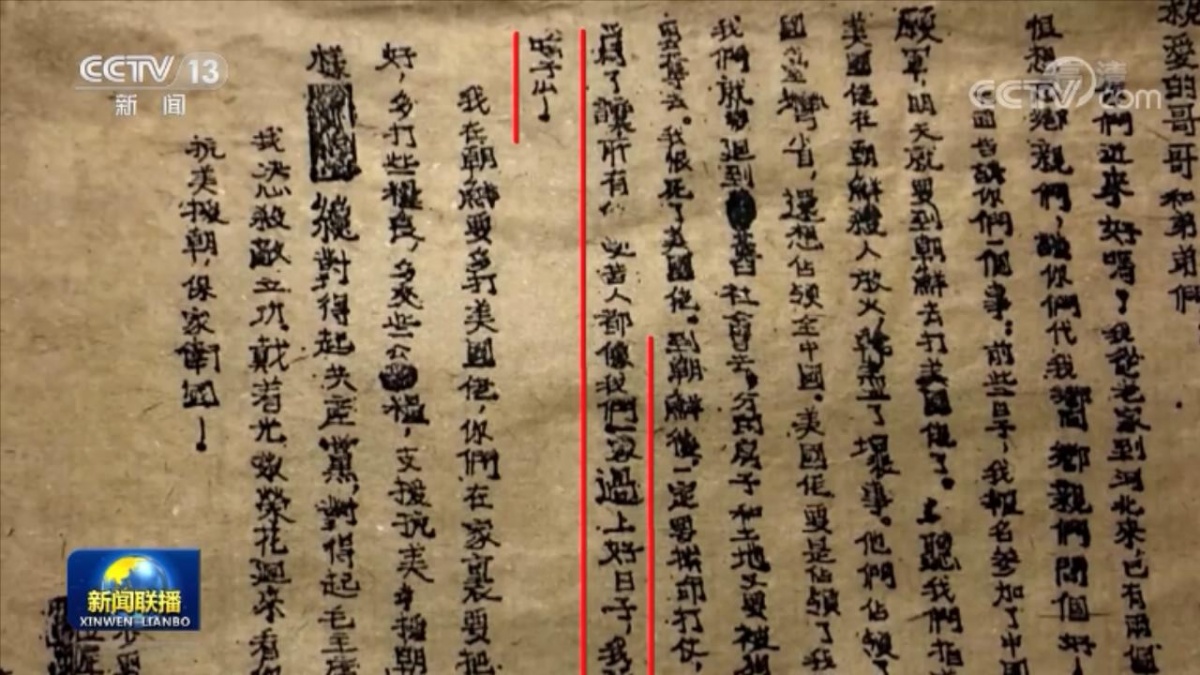 CCTV 13
新闻
高清
CCTV.com
親愛的哥哥和弟弟們
你們近來好嗎？我從老家到河北來，已有兩個
很想鄉親們，請你們代我嚮鄉親們問個好！
告訴你們一個事：前些日子，我報名參加了中國
願軍，明天就要到朝鮮去打美國佬了。上聽我們指
美國佬在朝鮮殺人放火，幹盡了壞事。他們佔領了
國台灣省，還想佔領全中國。美國佬要是佔領了我
我們就 迴到舊社會去，分的房子和土地又要被
奪去。我恨死了美國佬。到朝鮮後，一定要 打仗，
爲了讓所有 苦人都像我們一 過上好日子，我
出！
我在朝鮮要多打美國佬，你們在家裏要把
好，多打些糧食，多交些公糧，支援抗美 朝
樣 纔對得起共産黨，對得起毛主席
我決心殺敵立功。戴着光 榮花迴來看你
抗美援朝，保家衛國！
新闻联播
XINWEN LIANBO